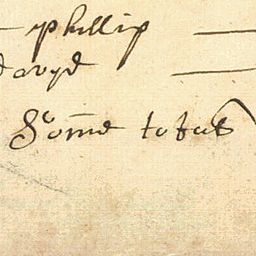 phillip
davyd
Some totall